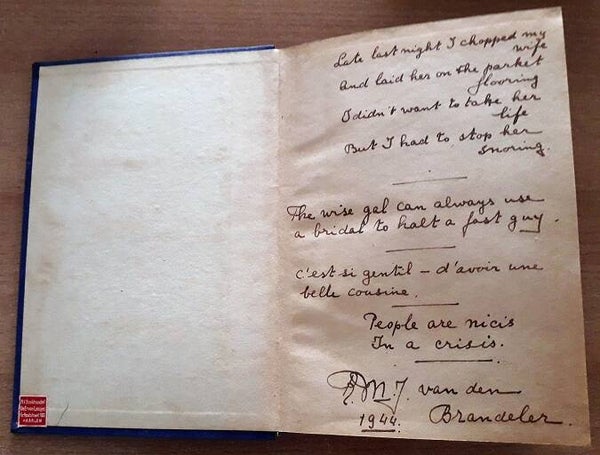 Late last night I chopped my
wife
And laid her on the parket
flooring
I didn't want to take her
life
But I had to stop her
snoring.
The wise gal can always use
a bridal to halt a fast guy.
c'est si gentil – d'avoir une
belle cousine.
People are nicis
In a crisis.
M. J. van den
1944. Brandeler.